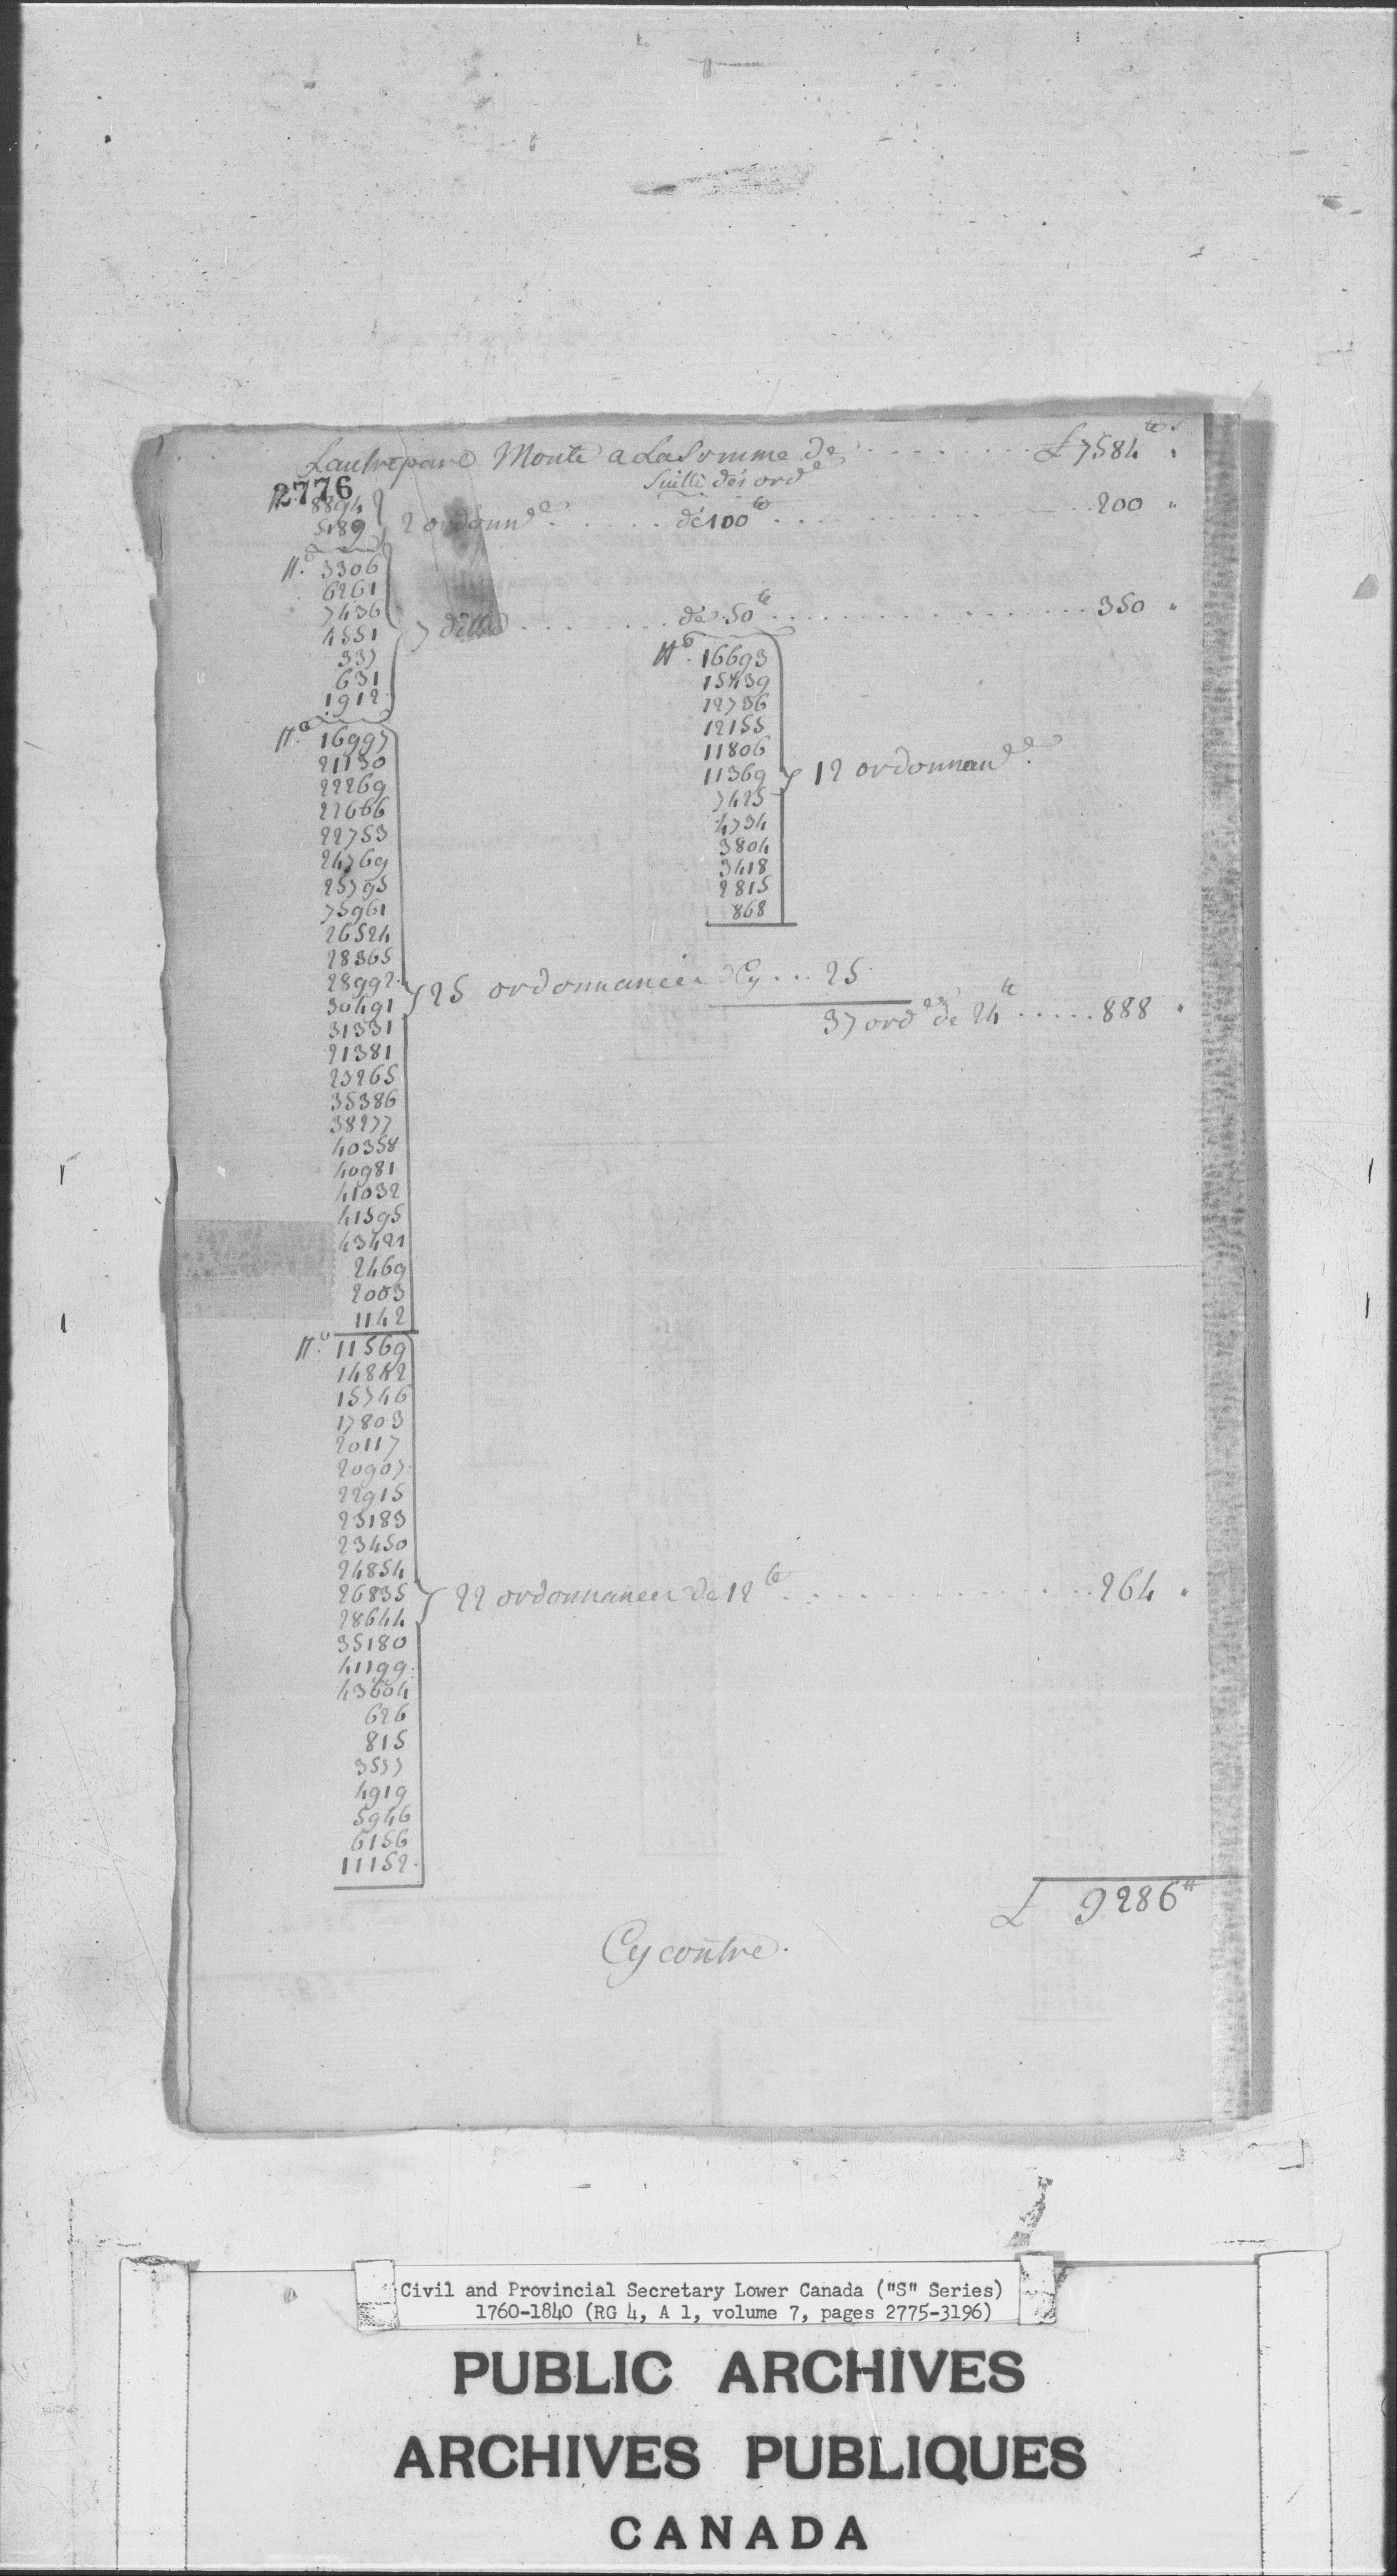 Lautrepare Monte a La Somme de . . . . . . . . £ 7584 tt s
Suitte des ord.e
2776
N.o 8894
5189 } 2 ordonn.ce . . . . . . de 100 tt . . . . . . . . . . 200 "
N.o 3306
6261
7436
4551 } 7 dittes . . . . . . . . de 50 tt . . . . . . . . . . 350 "
337
631
1912
N.o 16693
15439
22736
12155
11806
11369 } 12 ordonnan.ce
7425
4734
3804
3418
2815
868
N.o 16997
21130
22269
22666
22753
24769
25795
75961
26524
28365
28992
30491 } 25 ordonnances Cy . . . 25
37 ord.es de 24 tt . . . . . 888 "
31331
21381
23265
35386
38277
40358
40981
41032
41595
43421
2469
2003
1142
N.o 11569
14842
15746
17803
20117
20907
22915
23183
23450
24854
26835 } 22 ordonnances de 12 tt . . . . . . . . . . 264 "
28644
35180
41199
43604
626
815
3537
4919
5946
6156
11152
£ 9286 tt
Cy contre.
Civil and Provincial Secretary Lower Canada ("S" Series)
1760-1840 (RG 4, A 1, volume 7, pages 2775-3196)
PUBLIC ARCHIVES
ARCHIVES PUBLIQUES
CANADA